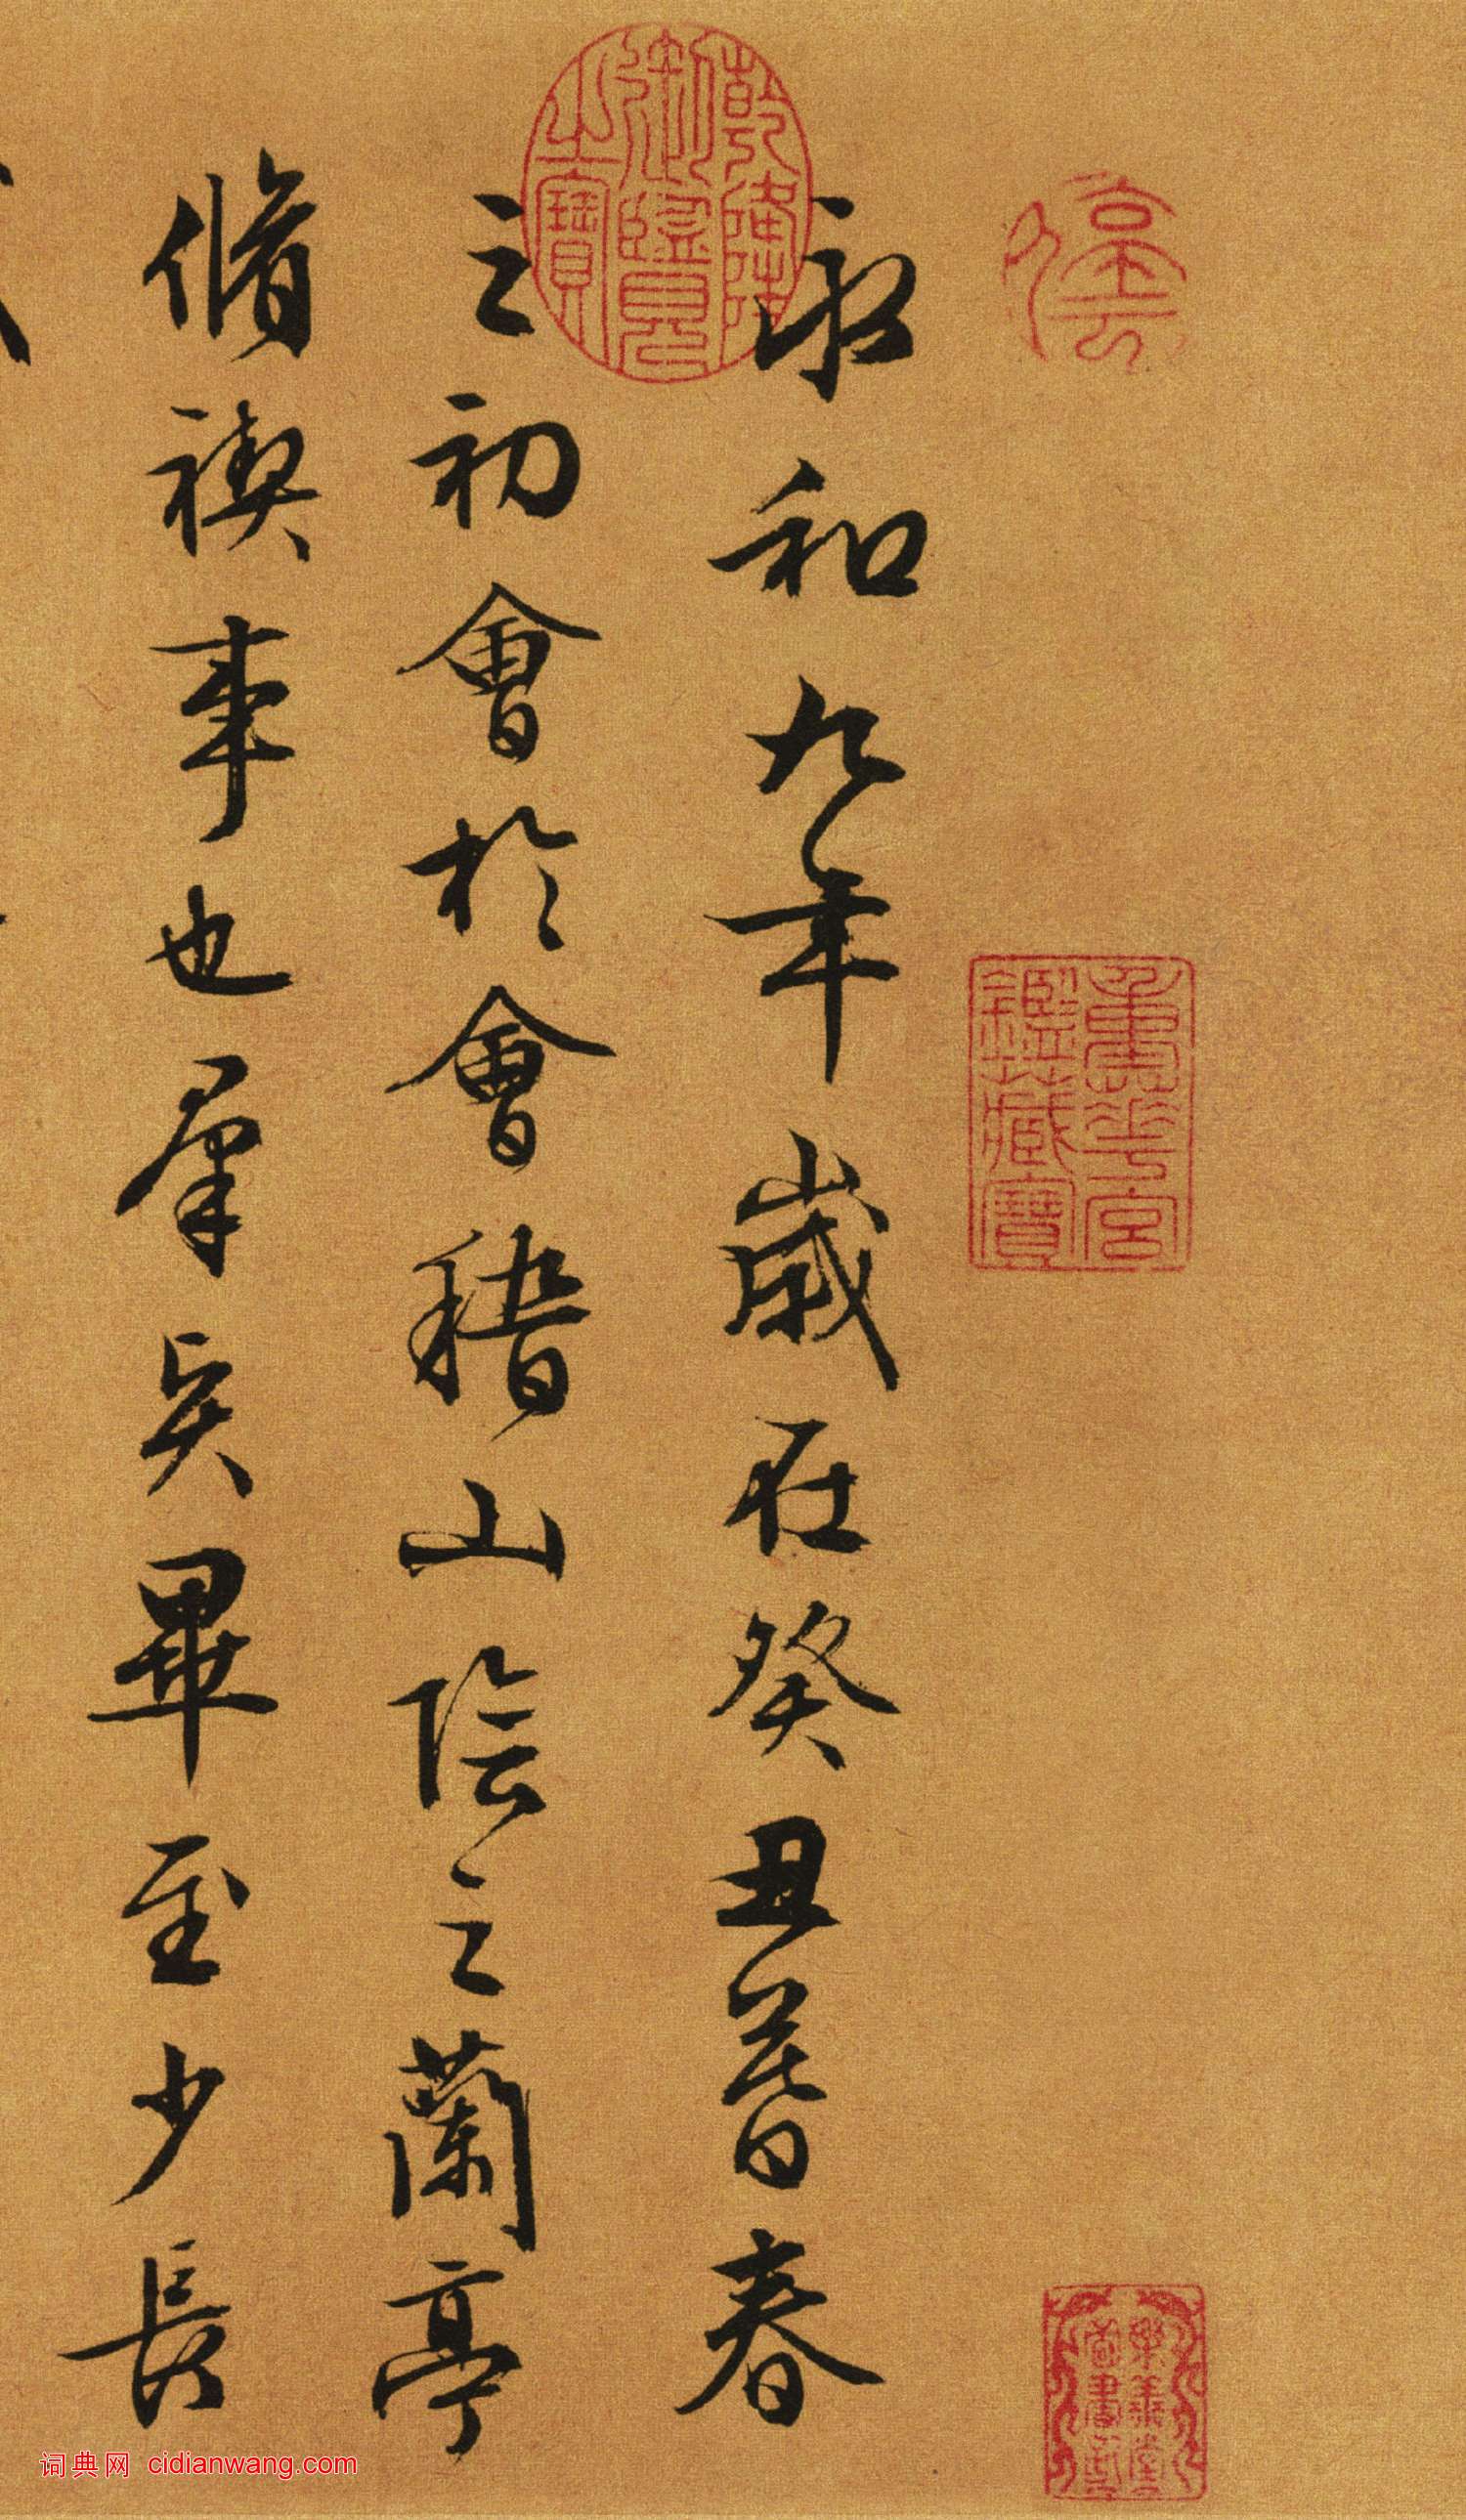 永和九年歲在癸丑暮春
之初會於會稽山陰之蘭亭
脩禊事也羣賢畢至少長
乾隆御覽之寶
重華宮鑑藏寶
樂善堂圖書記
词典网 cidianwang.com